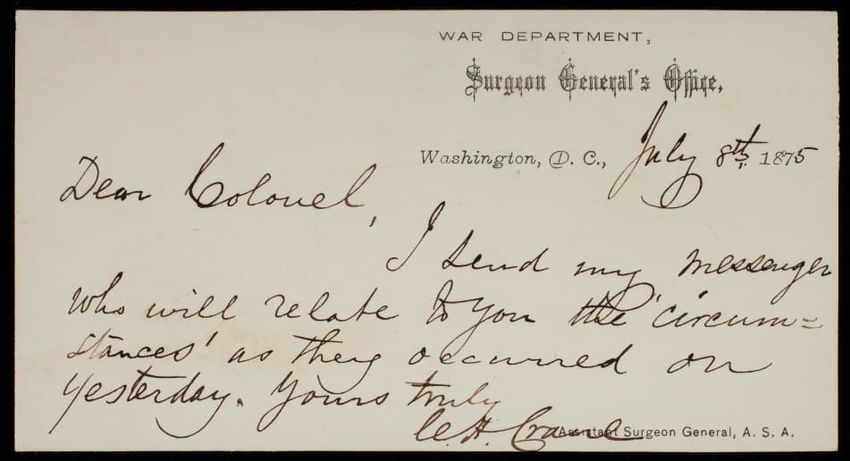 WAR DEPARTMENT,
Surgeon General's Office,
Washington, D. C., July 8th. 1875
Dear Colonel,
I send my messenger
who will relate to you the 'circum=
stances' as they occurred on
yesterday. Yours truly
C. H. Crane
Assistant Surgeon General, A. S. A.